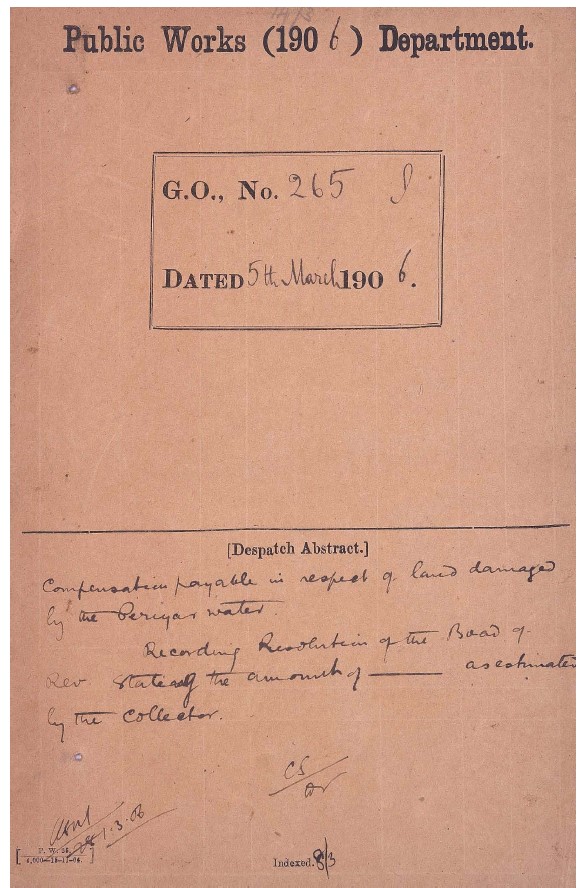 14/3
Public Works (1906) Department.
G.O., No. 265 I
DATED 5th March 1906.
[Despatch Abstract.]
Compensation payable in respect of land damaged
by the Periyar water.
Recording Resolution of the Board of
Rev. Stating the amount of ——— as estimated
by the Collector.
CS
1.3.06
[P. W.-25.
4,000—18-11-04.]
Indexed. 8/3